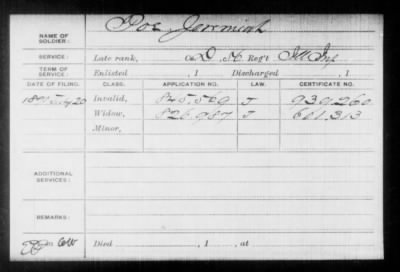 NAME OF SOLDIER: Poe, Jeremiah
SERVICE: Late rank, Co. D, Reg't Ill Inf
TERM OF SERVICE: Enlisted , 1 Discharged , 1
DATE OF FILING. CLASS. APPLICATION NO. LAW. CERTIFICATE NO.
Invalid, 845.509 J 939,260
Widow, 826,987 J 601,313
Minor,
ADDITIONAL SERVICES:
REMARKS:
Died , 1 , at